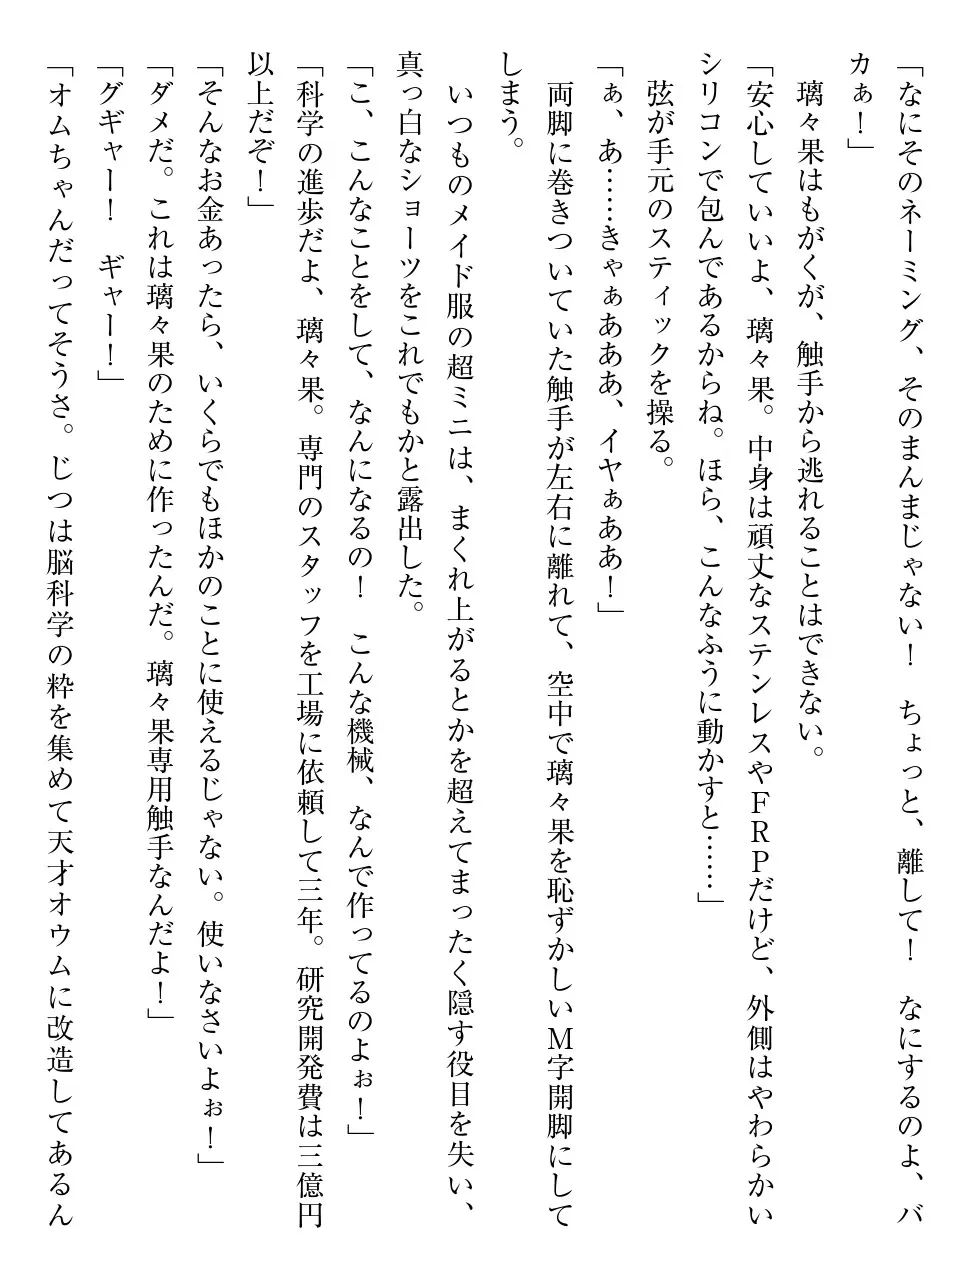 「なにそのネーミング、そのまんまじゃない！　ちょっと、離して！　なにするのよ、バ
カぁ！」
　璃々果はもがくが、触手から逃れることはできない。
「安心していいよ、璃々果。中身は頑丈なステンレスやＦＲＰだけど、外側はやわらかい
シリコンで包んであるからね。ほら、こんなふうに動かすと……」
　弦が手元のスティックを操る。
「ぁ、あ……きゃぁあああ、イヤぁああ！」
　両脚に巻きついていた触手が左右に離れて、空中で璃々果を恥ずかしいＭ字開脚にして
しまう。
　いつものメイド服の超ミニは、まくれ上がるとかを超えてまったく隠す役目を失い、
真っ白なショーツをこれでもかと露出した。
「こ、こんなことをして、なんになるの！　こんな機械、なんで作ってるのよぉ！」
「科学の進歩だよ、璃々果。専門のスタッフを工場に依頼して三年。研究開発費は三億円
以上だぞ！」
「そんなお金あったら、いくらでもほかのことに使えるじゃない。使いなさいよぉ！」
「ダメだ。これは璃々果のために作ったんだ。璃々果専用触手なんだよ！」
「グギャー！　ギャー！」
「オムちゃんだってそうさ。じつは脳科学の粋を集めて天才オウムに改造してあるん